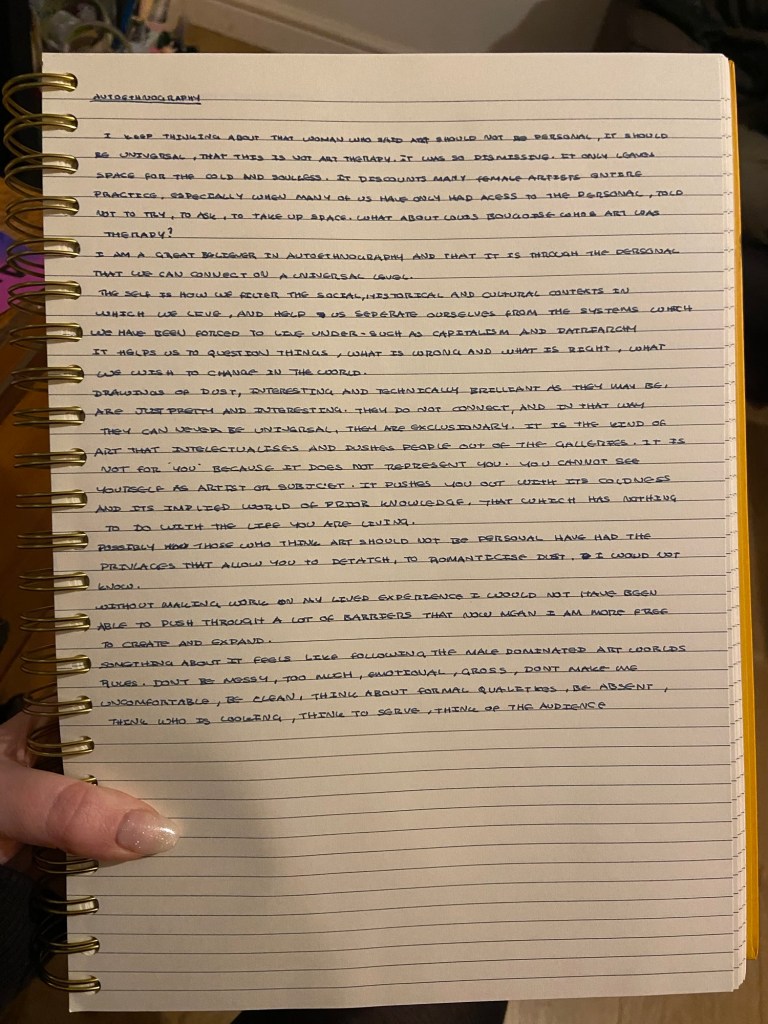 AUTOETHNOGRAPHY
I KEEP THINKING ABOUT THAT WOMAN WHO SAID ART SHOULD NOT BE PERSONAL, IT SHOULD
BE UNIVERSAL, THAT THIS IS NOT ART THERAPY. IT WAS SO DISMISSING. IT ONLY LEAVES
SPACE FOR THE COLD AND SOULLESS. IT DISCOUNTS MANY FEMALE ARTISTS ENTIRE
PRACTICE, ESPECIALLY WHEN MANY OF US HAVE ONLY HAD ACESS TO THE PERSONAL, TOLD
NOT TO TRY, TO ASK, TO TAKE UP SPACE. WHAT ABOUT LOUIS BOUGOISE WHOS ART WAS
THERAPY?
I AM A GREAT BELIEVER IN AUTOETHNOGRAPHY AND THAT IT IS THROUGH THE PERSONAL
THAT WE CAN CONNECT ON A UNIVERSAL LEVEL.
THE SELF IS HOW WE FILTER THE SOCIAL, HISTORICAL AND CULTURAL CONTEXTS IN
WHICH WE LIVE, AND HELP US SEPERATE OURSELVES FROM THE SYSTEMS WHICH
WE HAVE BEEN FORCED TO LIVE UNDER - SUCH AS CAPITALISM AND PATRIARCHY
IT HELPS US TO QUESTION THINGS, WHAT IS WRONG AND WHAT IS RIGHT, WHAT
WE WISH TO CHANGE IN THE WORLD.
DRAWINGS OF DUST, INTERESTING AND TECHNICALLY BRILLIANT AS THEY MAY BE,
ARE JUST PRETTY AND INTERESTING. THEY DO NOT CONNECT, AND IN THAT WAY
THEY CAN NEVER BE UNIVERSAL, THEY ARE EXCLUSIONARY. IT IS THE KIND OF
ART THAT INTELECTUALISES AND PUSHES PEOPLE OUT OF THE GALLERIES. IT IS
NOT FOR 'YOU' BECAUSE IT DOES NOT REPRESENT YOU. YOU CANNOT SEE
YOURSELF AS ARTIST OR SUBJECT. IT PUSHES YOU OUT WITH ITS COLDNESS
AND ITS IMPLIED WORLD OF PRIOR KNOWLEDGE, THAT WHICH HAS NOTHING
TO DO WITH THE LIFE YOU ARE LIVING.
POSSIBLY THOSE WHO THINK ART SHOULD NOT BE PERSONAL HAVE HAD THE
PRIVLAGES THAT ALLOW YOU TO DETATCH, TO ROMANTICISE DUST, I WOULD NOT
KNOW.
WITHOUT MAKING WORK ON MY LIVED EXPERIENCE I WOULD NOT HAVE BEEN
ABLE TO PUSH THROUGH A LOT OF BARRIERS THAT NOW MEAN I AM MORE FREE
TO CREATE AND EXPAND.
SOMETHING ABOUT IT FEELS LIKE FOLLOWING THE MALE DOMINATED ART WORLDS
RULES. DONT BE MESSY, TOO MUCH, EMOTIONAL, GROSS, DONT MAKE ME
UNCOMFORTABLE, BE CLEAN, THINK ABOUT FORMAL QUALITIES, BE ABSENT,
THINK WHO IS LOOKING, THINK TO SERVE, THINK OF THE AUDIENCE